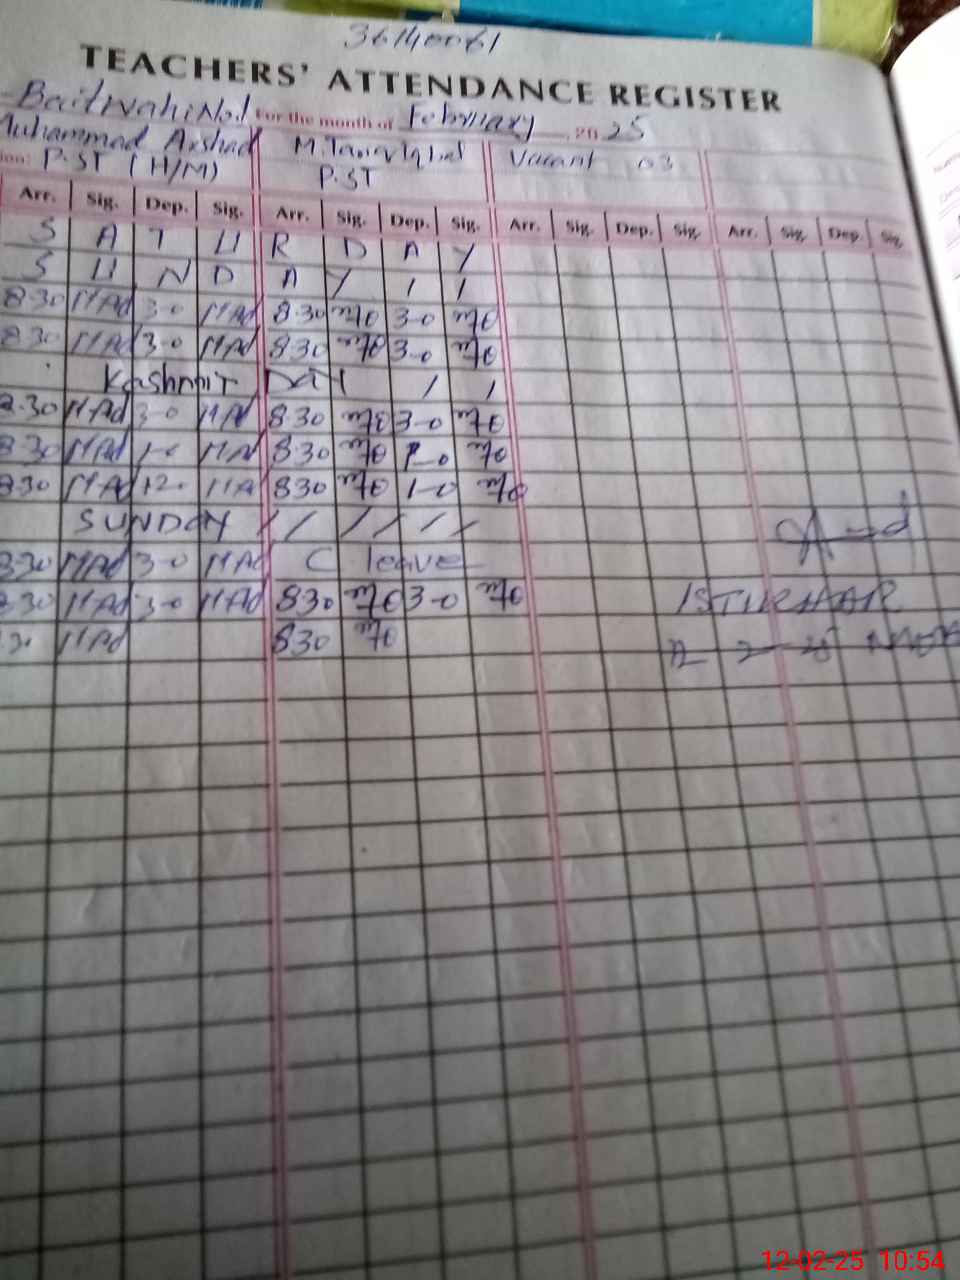 36140061
TEACHERS' ATTENDANCE REGISTER
Beitwahi No.1 For the month of February 2025
Muhammad Arshad M. Tanvir Iqbal Vacant 03
P.ST (H/M) P.ST
Arr. Sig. Dep. Sig. Arr. Sig. Dep. Sig. Arr. Sig. Dep. Sig. Arr. Sig. Dep. Sig.
S A T U R D A Y
S U N D A Y / /
8.30 MAd 3-0 MAd 8.30 3-0
8.30 MAd 3-0 MAd 8.30 3-0
Kashmir DAY / /
8.30 MAd 3-0 MAd 8.30 3-0
8.30 MAd 1-0 MAd 8.30 1-0
8.30 MAd 12. MAd 8.30 1-0
SUNDAY / / / / / /
8.30 MAd 3-0 MAd C leave
8.30 MAd 3-0 MAd 8.30 3-0
8.30 MAd 8.30
12-2-25
12-02-25 10:54